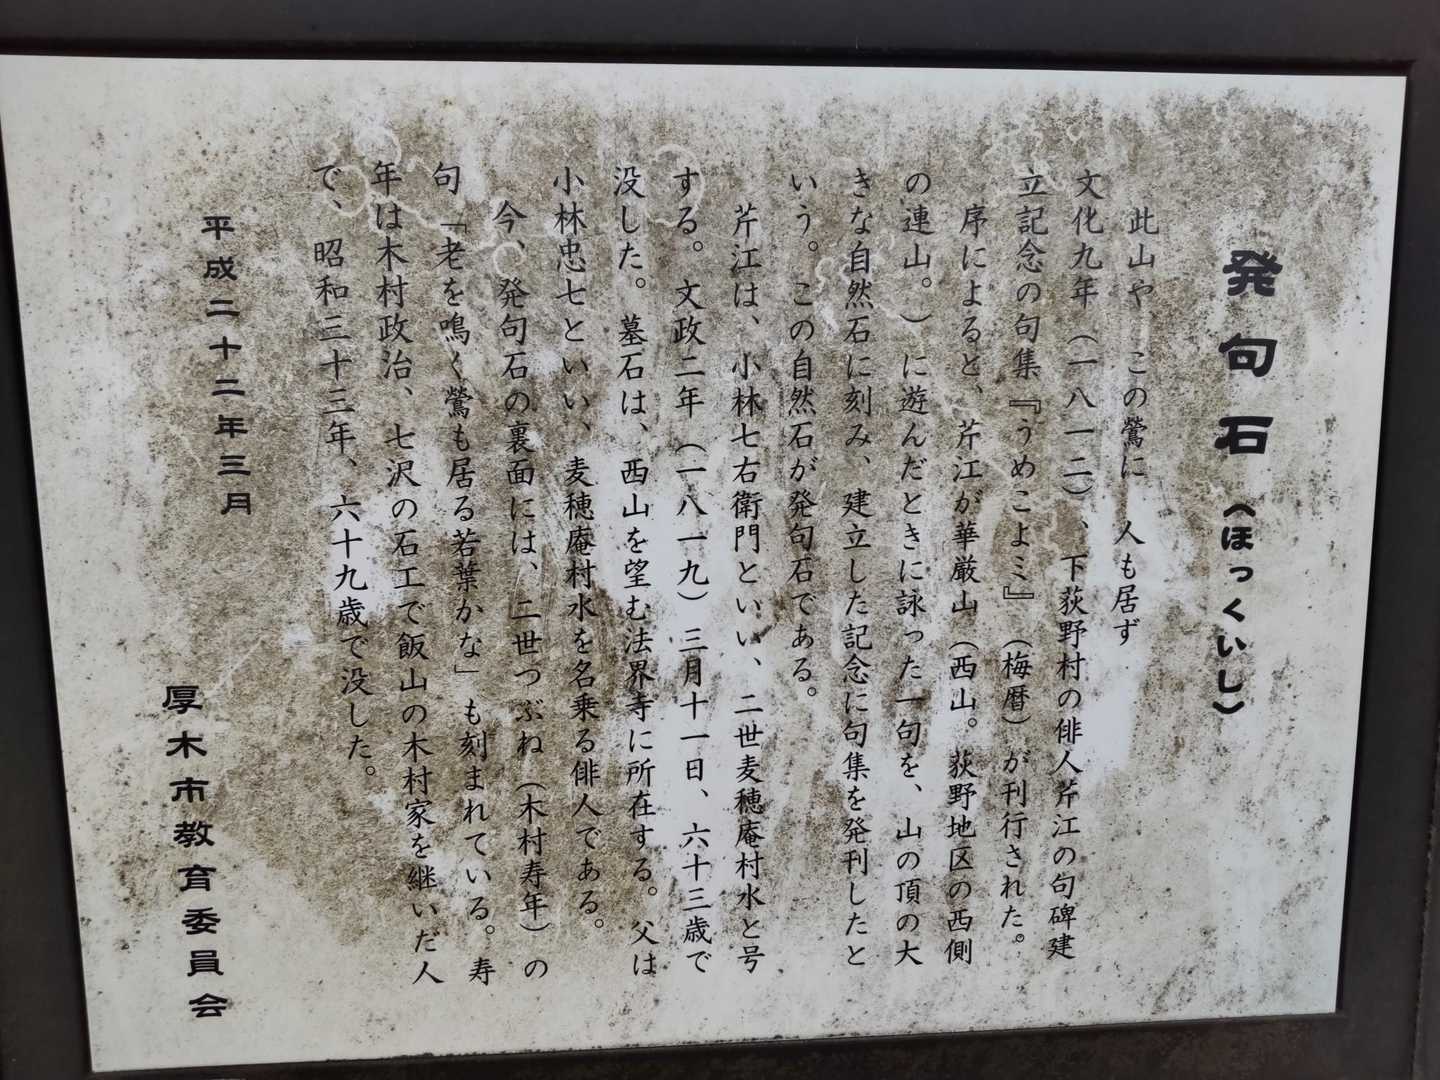 発句石（ほっくいし）
此山や　この鶯に　人も居ず
文化九年（一八一二）、下荻野村の俳人芹江の句碑建
立記念の句集『うめこよミ』（梅暦）が刊行された。
序によると、芹江が華厳山（西山。荻野地区の西側
の連山。）に遊んだときに詠った一句を、山の頂の大
きな自然石に刻み、建立した記念に句集を発刊したと
いう。この自然石が発句石である。
芹江は、小林七右衛門といい、二世麦穂庵村水と号
する。文政二年（一八一九）三月十一日、六十三歳で
没した。墓石は、西山を望む法界寺に所在する。父は
小林忠七といい、麦穂庵村水を名乗る俳人である。
今、発句石の裏面には、二世つぶね（木村寿年）の
句「老を鳴く鶯も居る若葉かな」も刻まれている。寿
年は木村政治、七沢の石工で飯山の木村家を継いだ人
で、昭和三十三年、六十九歳で没した。
平成二十二年三月
厚木市教育委員会